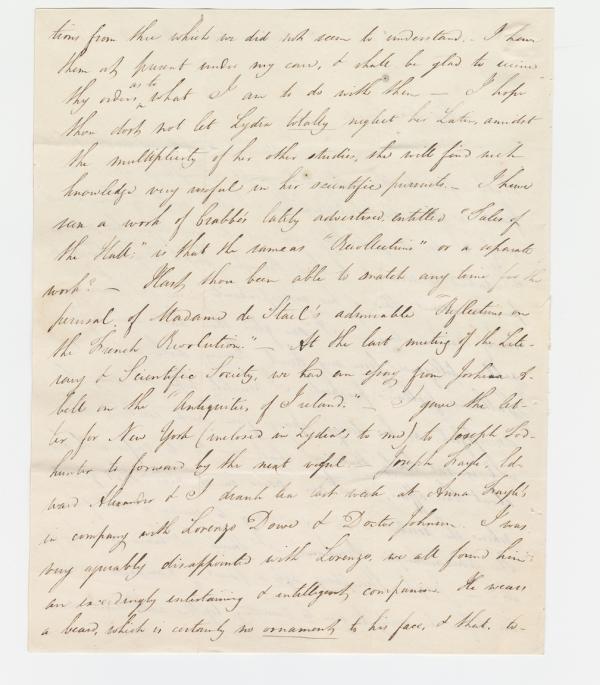 tions from thee which we did not seem to understand. - I have
them at present under my care, & shall be glad to receive
thy orders as to what I am to do with them — I hope
thou dost not let Lydia totally neglect her Latin, amidst
the multiplicity of her other studies, she will find such
knowledge very useful in her scientific pursuits. - I have
seen a work of Crabbe's lately advertised, entitled "Tales of
the Hall:" is that the same as "Recollections" or a separate
work? — Hast thou been able to snatch any time for the
perusal of Madame de Stael's admirable "Reflections on
the French Revolution." — At the last meeting of the Lite-
rary & Scientific Society, we had an essay from Joshua A-
bell on the "Antiquities of Ireland." — I gave the let-
ter for New York (inclosed in Lydia's to me) to Joseph
hunter to forward by the next vessel — Joseph Ed-
ward Alexander & I drank tea last week at Anna
in company with Lorenzo Dowe & Doctor Johnson. I was
very agreeably disappointed with Lorenzo, we all found him
an exceedingly entertaining & intelligent companion. He wears
a beard, which is certainly no ornament to his face, & that to-